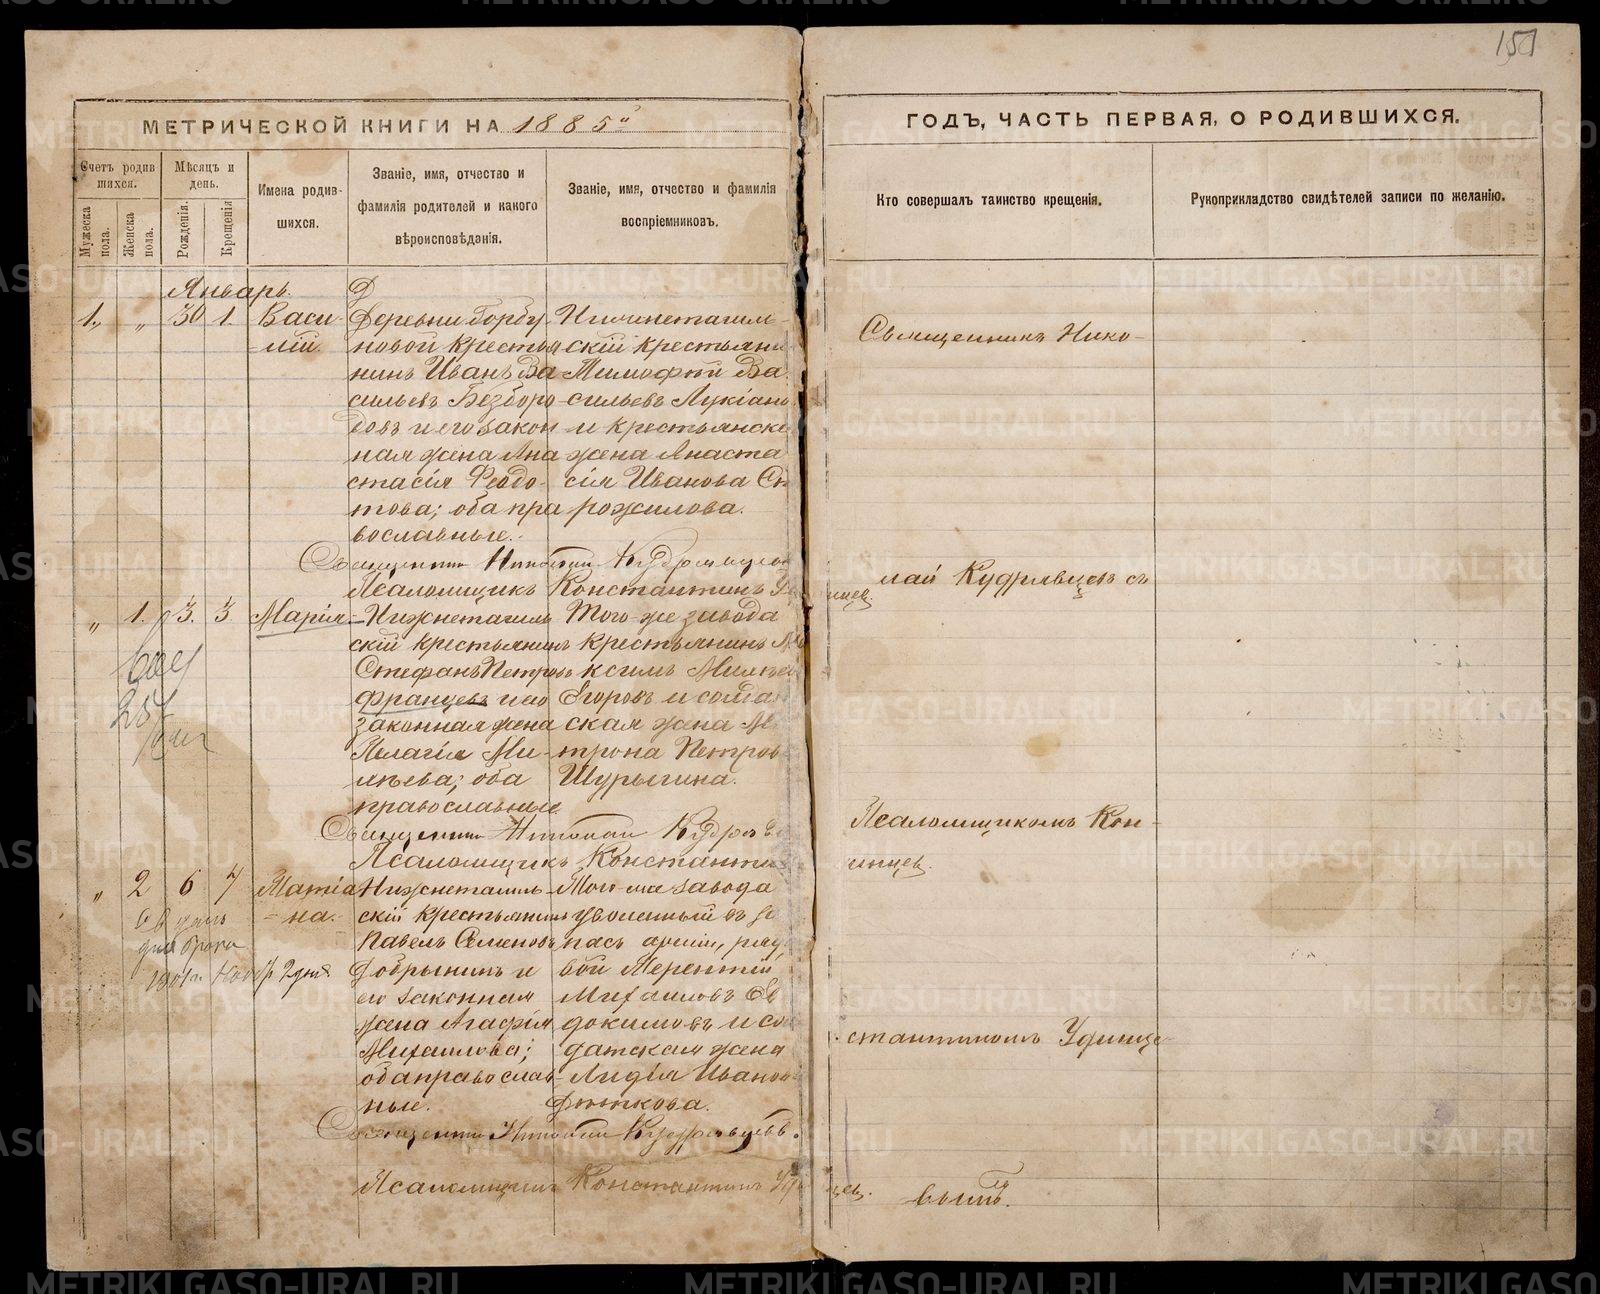 151
МЕТРИЧЕСКОЙ КНИГИ НА 1885й
ГОДЪ, ЧАСТЬ ПЕРВАЯ, О РОДИВШИХСЯ.
Счетъ родив
шихся.
Мужеска пола.
Женска пола.
Мѣсяцъ и день.
Рожденія.
Крещенія
Имена родив-
шихся.
Званіе, имя, отчество и
фамилія родителей и какого
вѣроисповѣданія.
Званіе, имя, отчество и фамилія
воспріемниковъ.
Кто совершалъ таинство крещенія.
Рукоприкладство свидѣтелей записи по желанію.
Январь.
1. „ 30 1. Васи-
лій.
Деревни Горбу-
новой крестья
нинъ Иванъ Ва
сильевъ Безборо
довъ и его закон
ная жена Ана
стасія Федо-
това; оба пра
вославные.
Нижнетагиль-
скій крестьяни
Тимофѣй Ва
сильевъ Лукіан
и крестьянск
жена Анаста
сія Иванова Ст
рожилова.
Священникъ Николай Кудрявцев
Псаломщикъ Константинъ
Священникъ Нико-
лай Кудрявцевъ съ
„ 1. 3. 3 Марія
Нижнетагиль
скій крестьянинъ
Стефанъ Петровъ
Францевъ и его
законная жена
Пелагія Ми-
нѣева; оба
православные
Того-же завода
крестьянинъ М
ксимъ
Егоровъ и солда
ская жена М
трона Петров
Шурыгина.
Священникъ Николай Кудрявц
Псаломщикъ Константи
Псаломщикомъ Кон-
стантиномъ Удинце
„ 2 6 7 Матіа
на.
Нижнетагиль-
скій крестьянинъ
Павелъ Семеновъ
Добрынинъ и
его законная
жена Агафія
Михаилова;
оба православ
ные.
Того-же завода
уволенный въ за
пасъ арміи, ряд
вой Терентій
Михаиловъ Ев
докимовъ и со
датская жена
Лидія Иванов
Священникъ Николай Кудрявцевъ.
Псаломщикъ Константинъ Уд
вымъ.